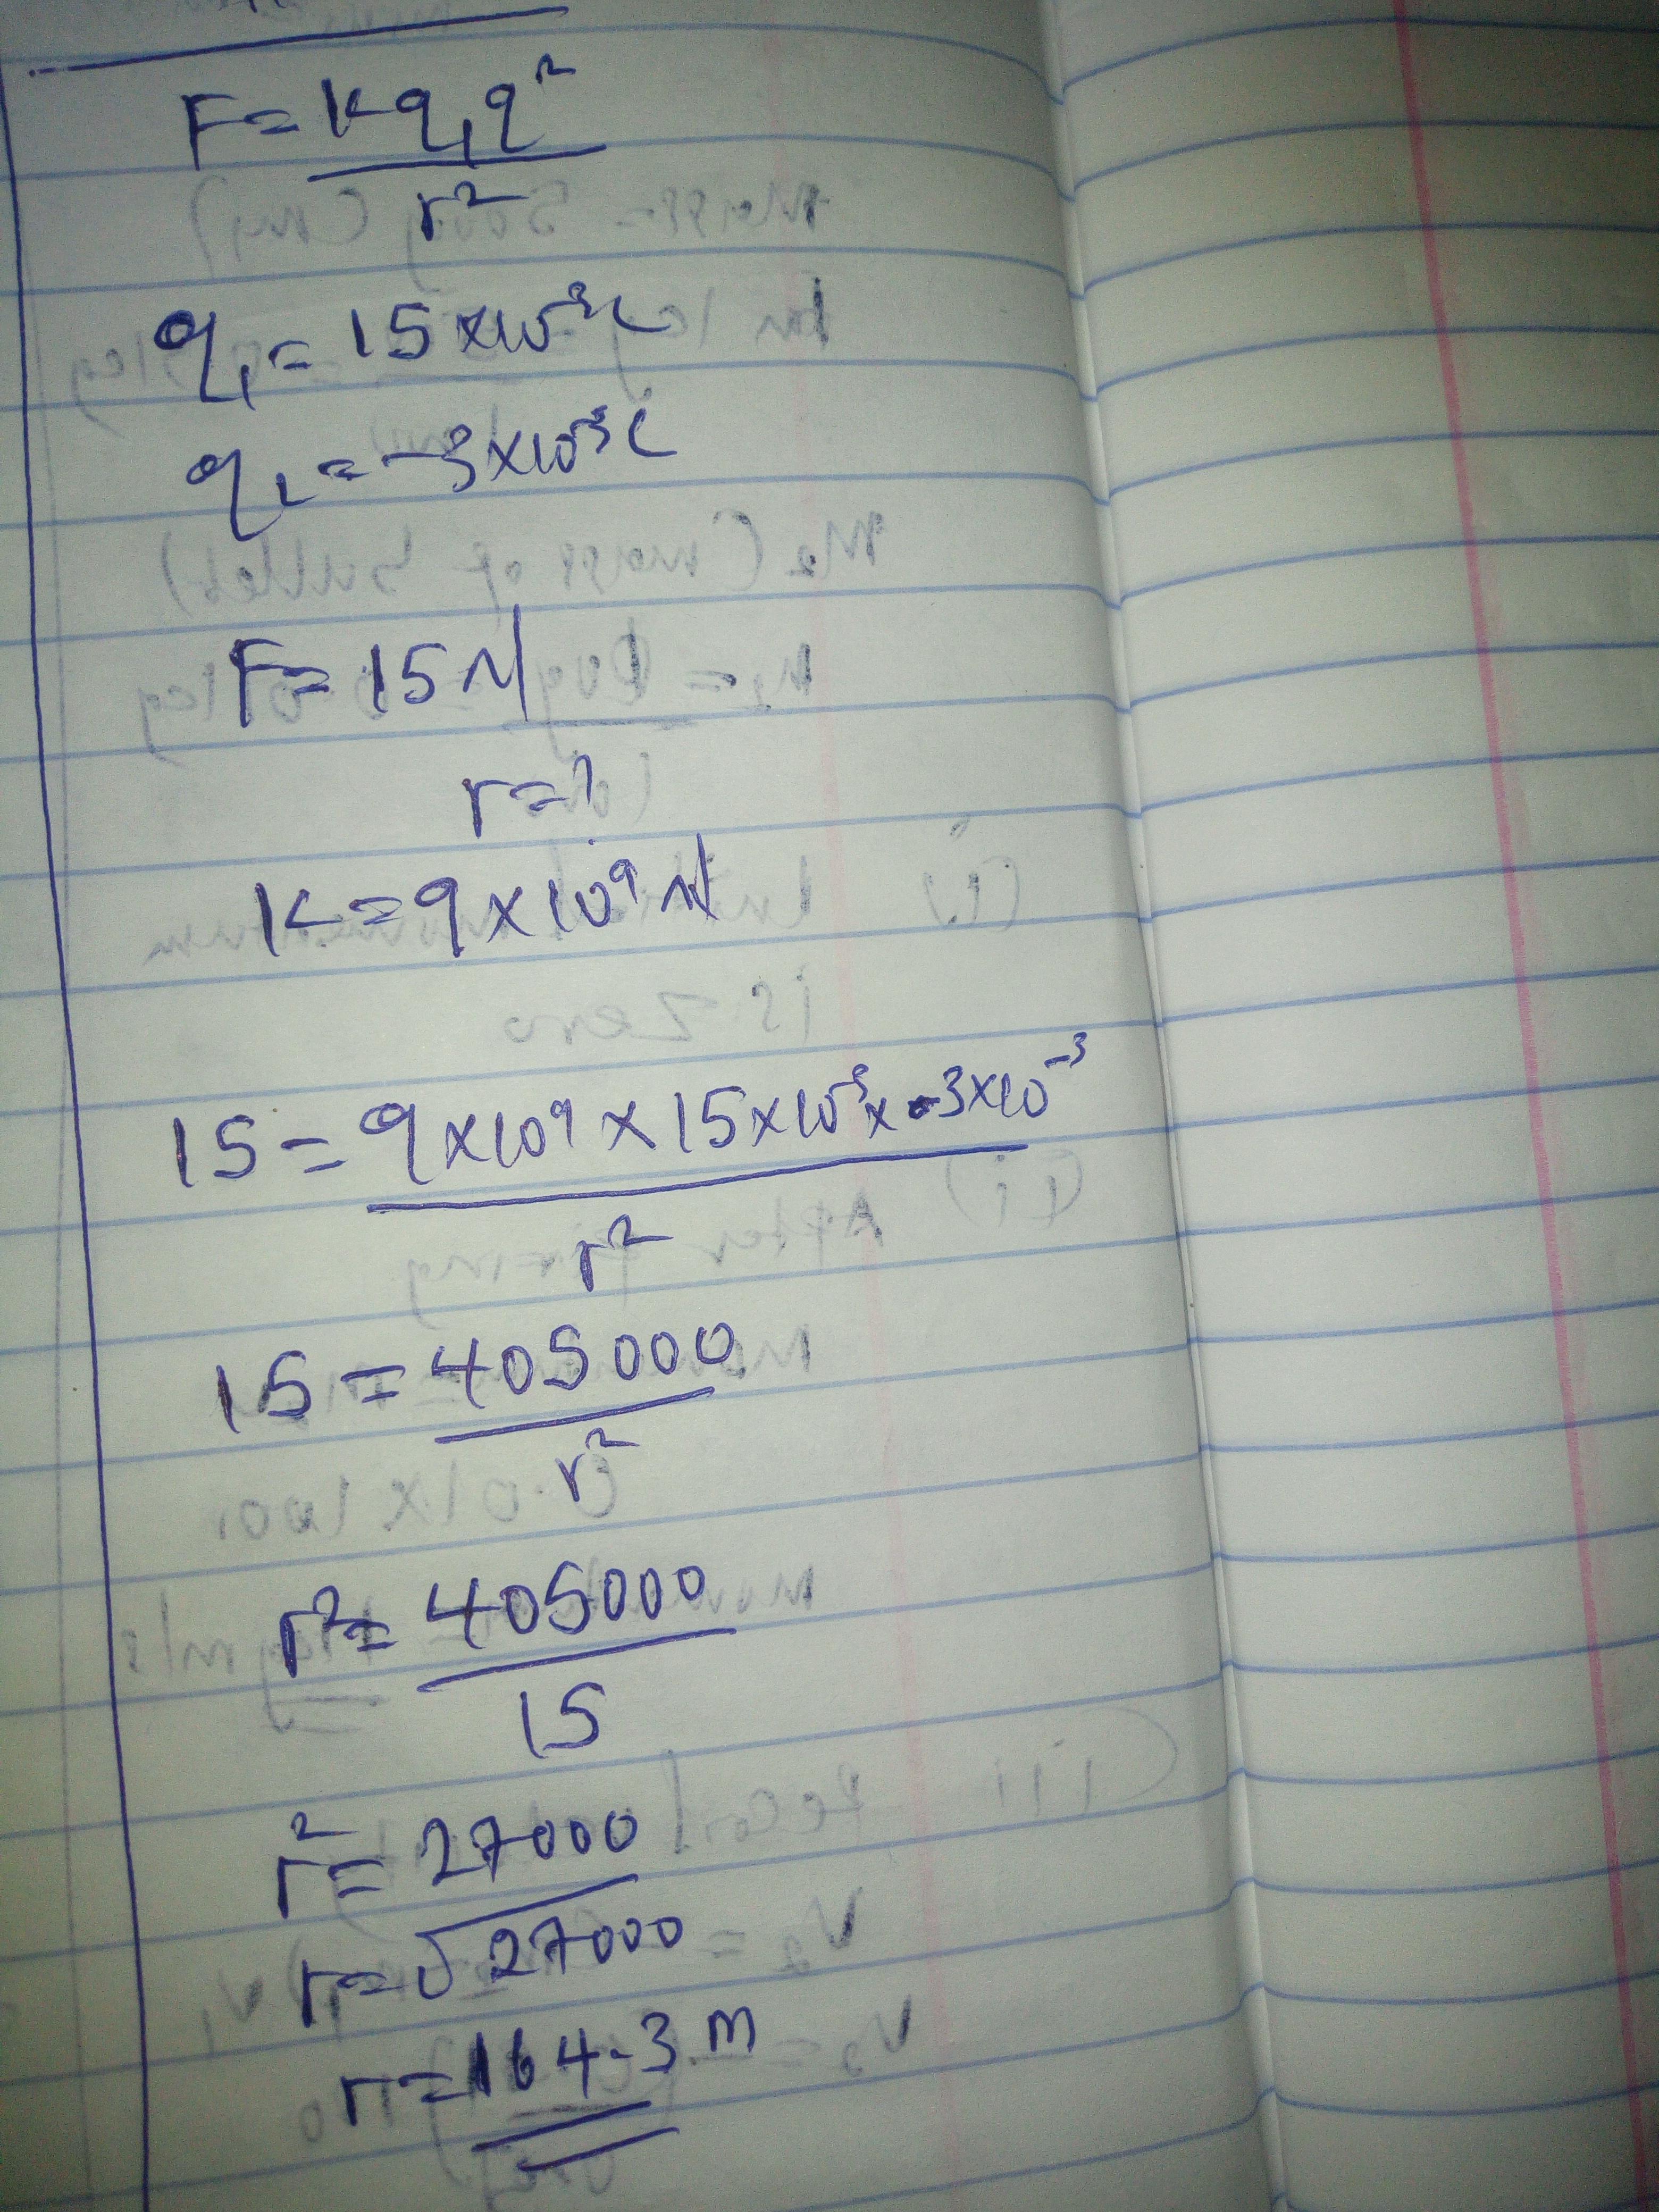 F = kq₁q²
r²
q₁ = 15 × 10⁻³C
q₂ = -3 × 10⁻³C
F = 15N
r = ?
K = 9 × 10⁹ N
15 = 9 × 10⁹ × 15 × 10⁻³ × -3 × 10⁻³
r²
15 = 405000
r²
r² = 405000
15
r² = 27000
r = √27000
r = 164.3 m